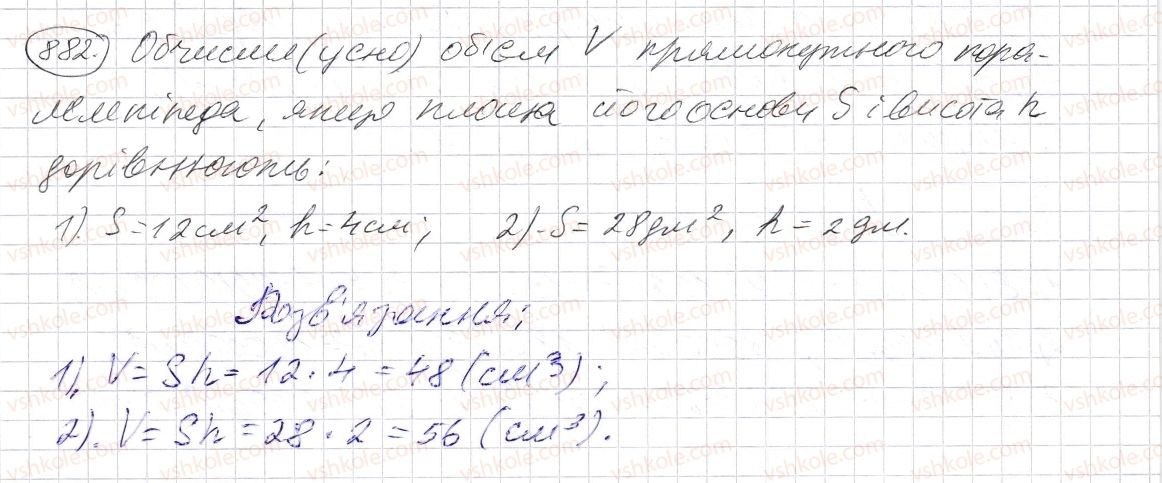 882. Обчисли (усно) об'єм V прямокутного пара-
лелепіпеда, якщо площа його основи S і висота h
дорівнюють:
1). S = 12 см², h = 4 см; 2). S = 28 дм², h = 2 дм.
Розв'язання:
1). V = Sh = 12 · 4 = 48 (см³);
2). V = Sh = 28 · 2 = 56 (см³).